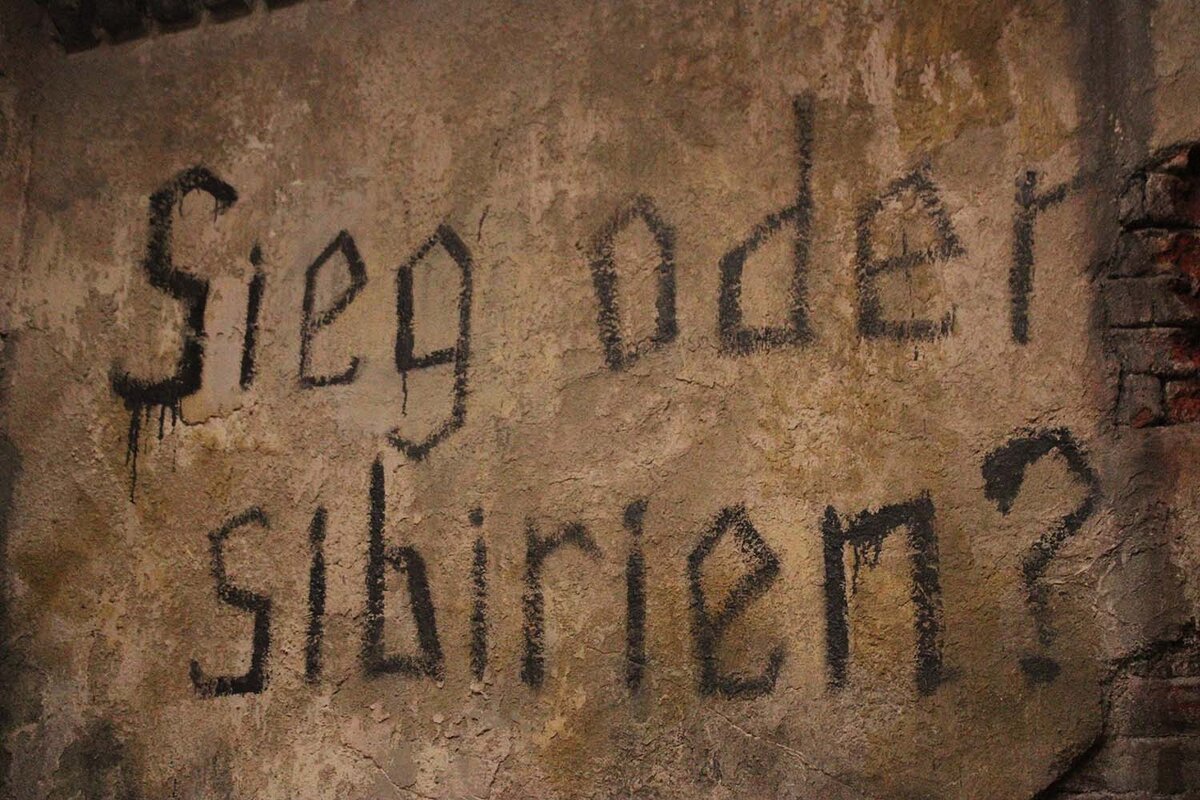 Sieg oder
sibirien?